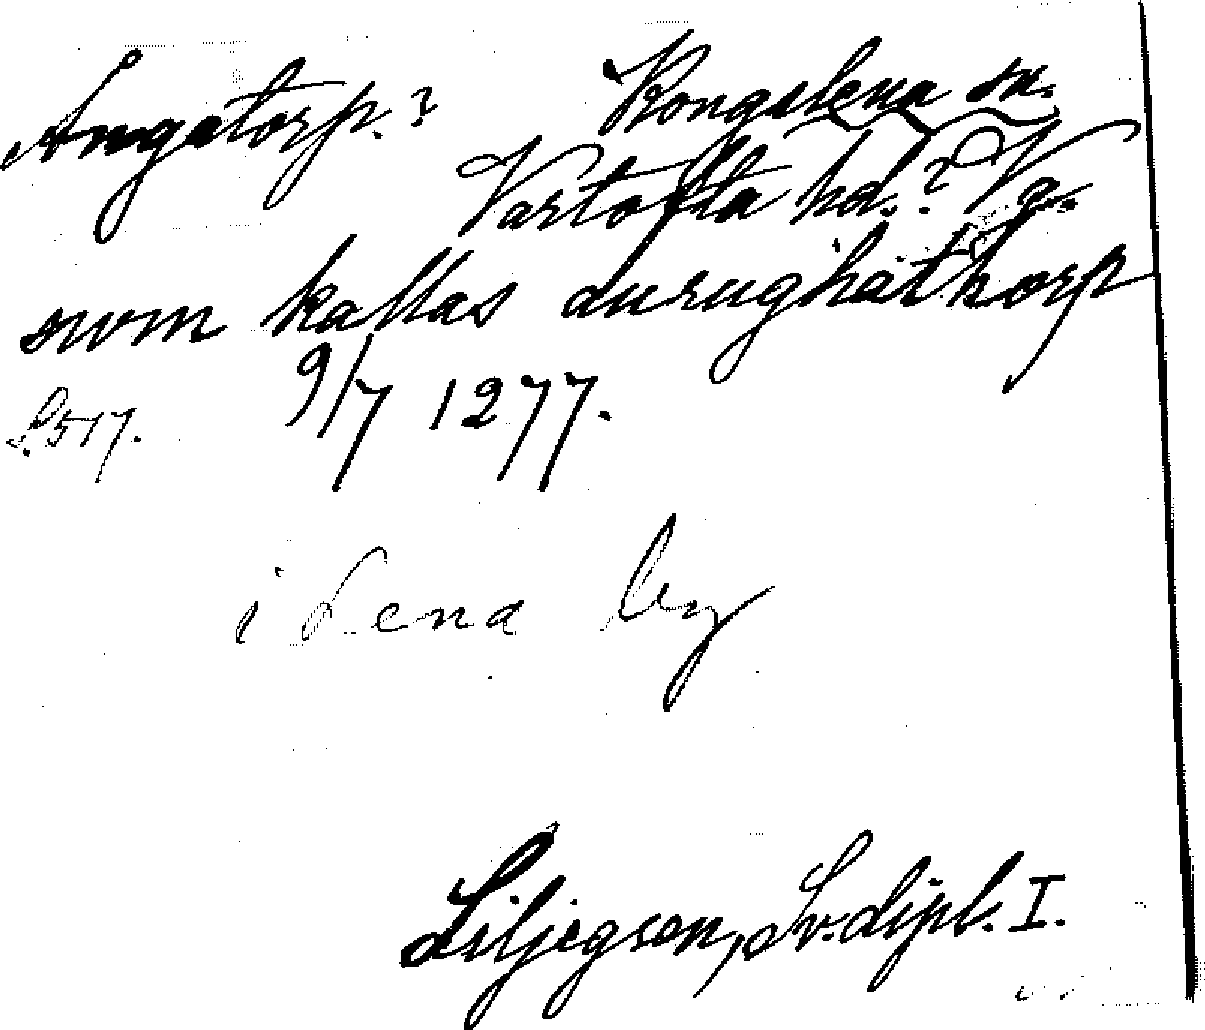 Ångatorp.? Kongslena sn.
Vartofta hd.? Vg.
swm kallas durughatthorp
S. 517. 9/7 1277.
i Lena by
Liljegren, Sv. dipl. I.